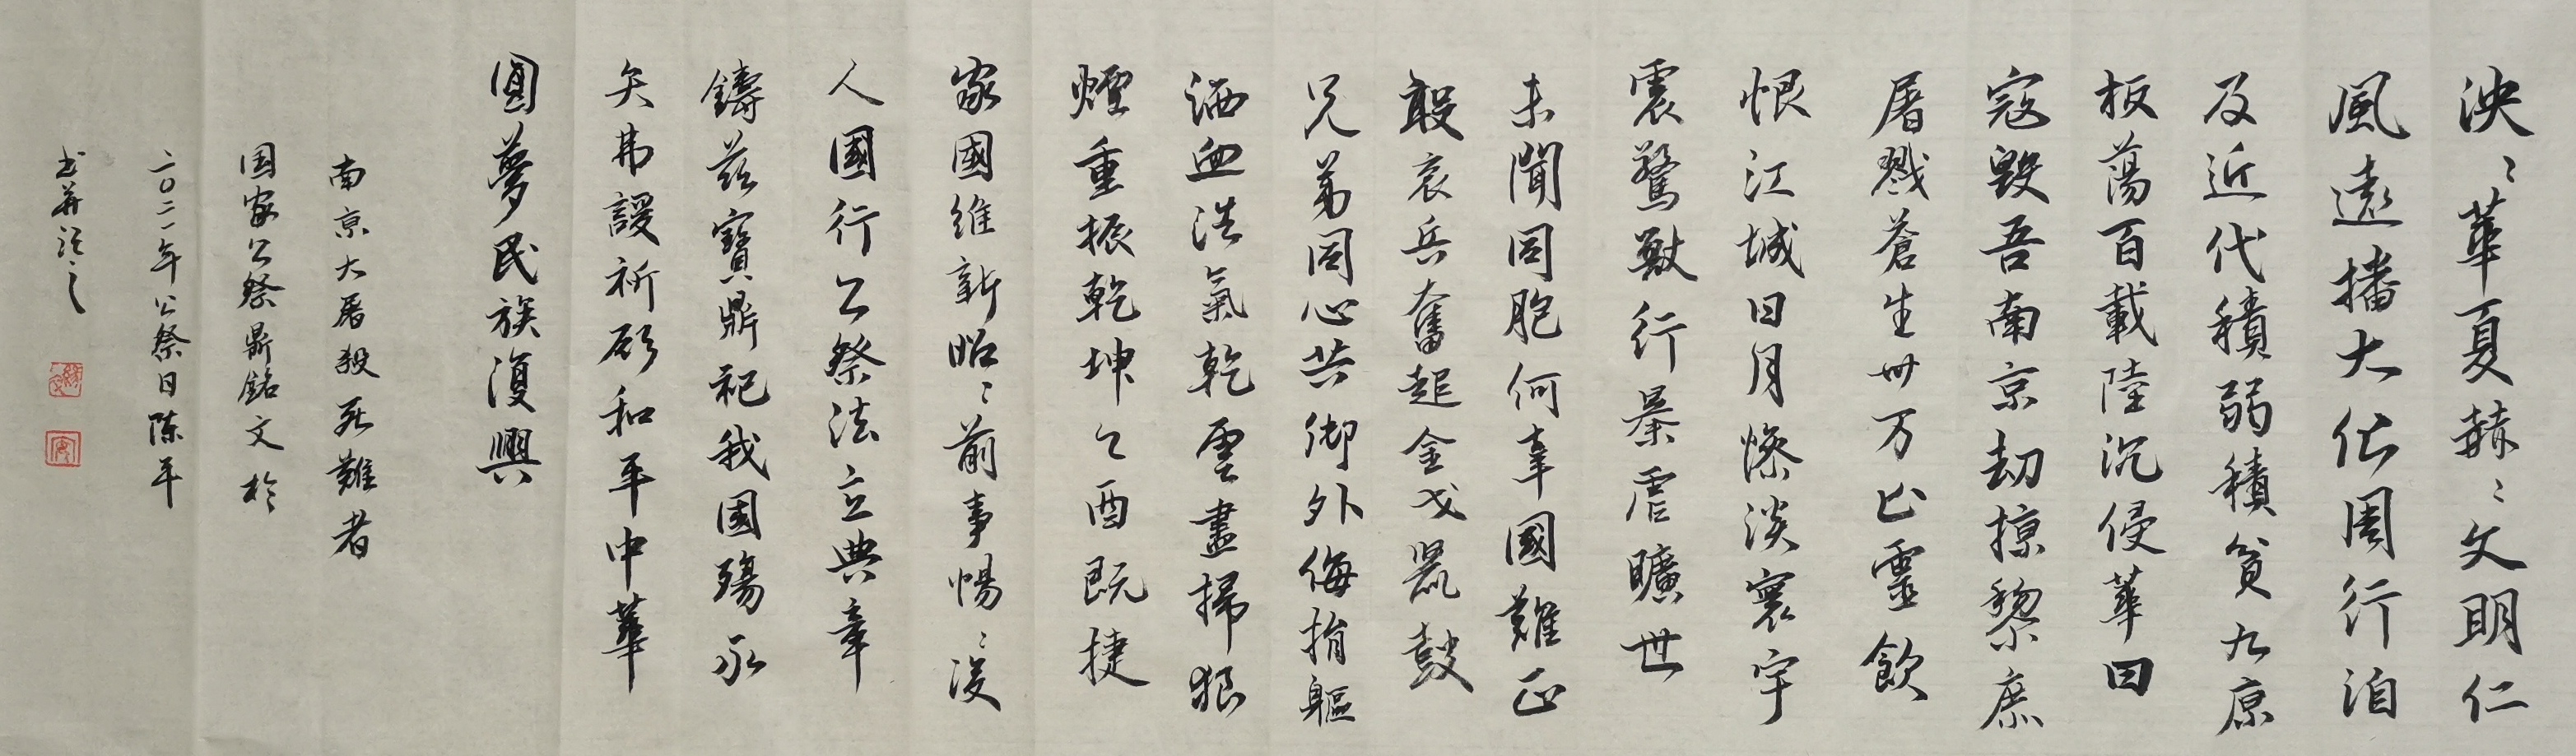 泱〻華夏赫〻文明仁
風遠播大化周行洎
及近代積弱積貧九原
板蕩百載陸沉侵華日
寇毀吾南京劫掠黎庶
屠戮蒼生卅万亡靈飲
恨江城日月慘淡寰宇
震驚獸行暴虐曠世
未聞同胞何辜國難正
殷哀兵奮起金戈鼍鼓
兄弟同心共御外侮捐軀
洒血浩氣乾雲盡掃狼
煙重振乾坤乙酉既捷
家國維新昭〻前事惕〻後
人國行公祭法立典章
鑄茲寶鼎祀我國殤永
矢弗諼祈願和平中華
圓夢民族復興
南京大屠殺死難者
国家公祭鼎銘文於
二〇二一年公祭日陈平
书并記之